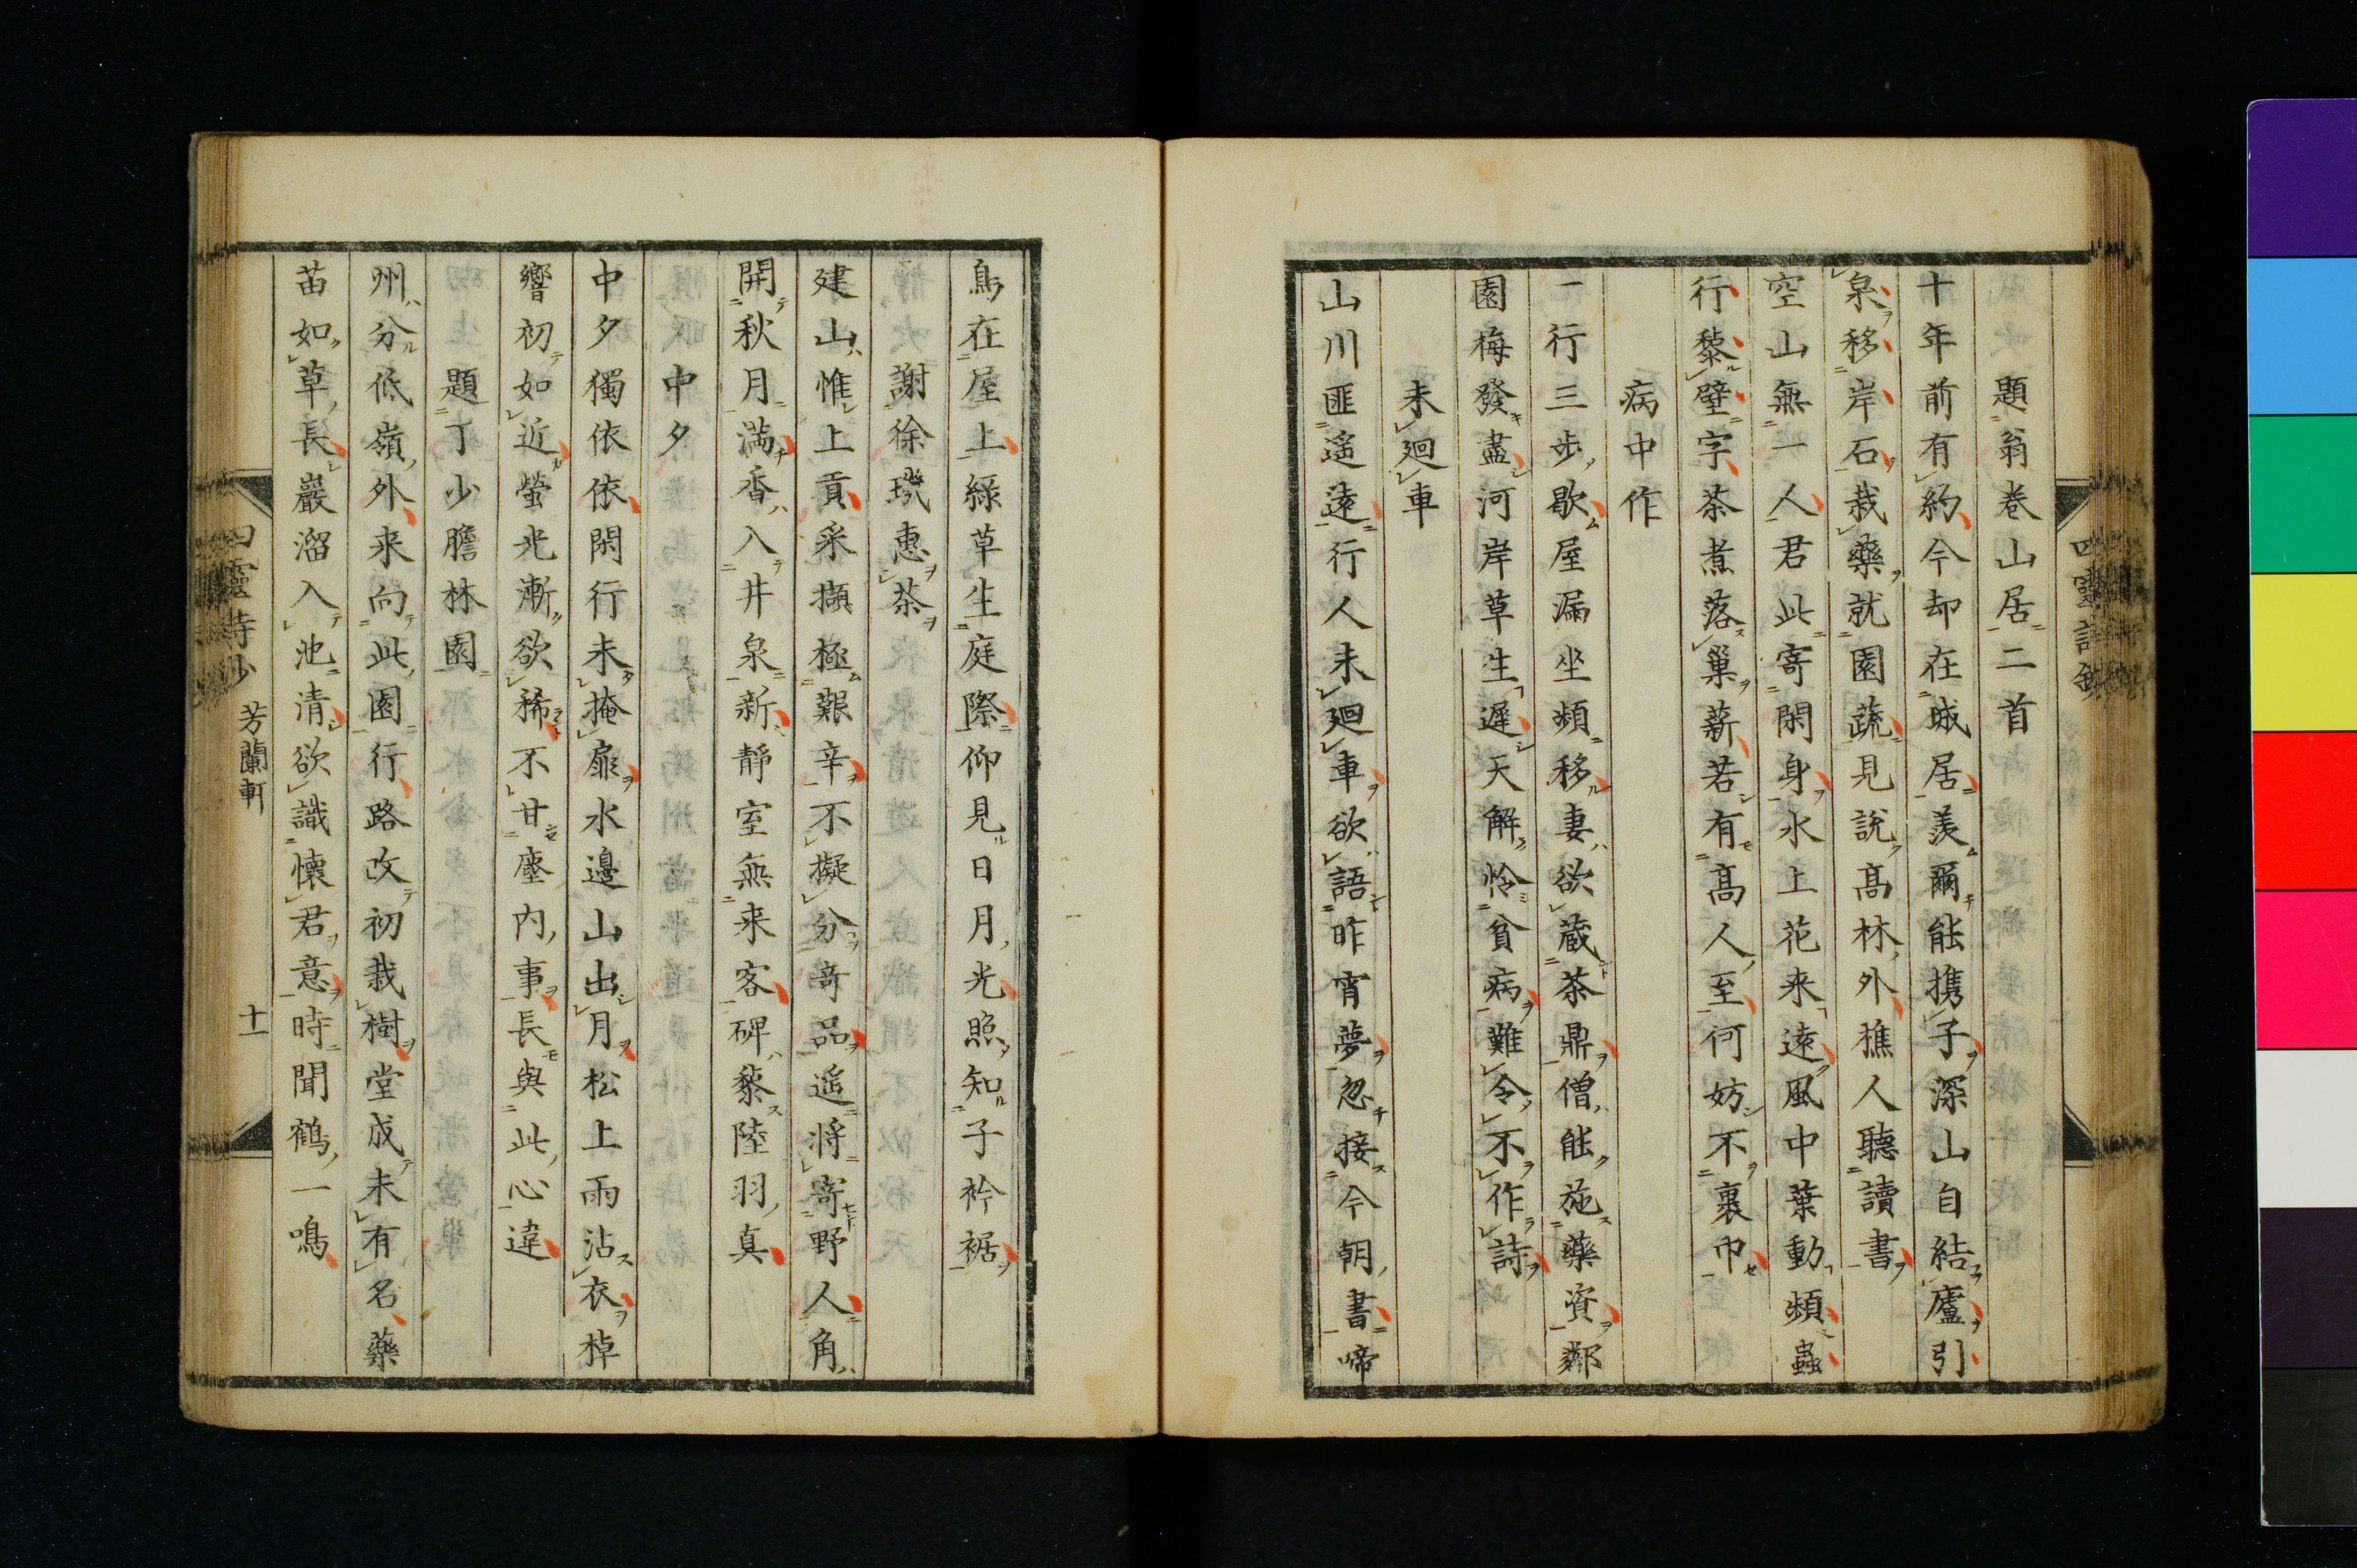 題翁卷山居二首
十年前有約今却在城居羡爾能携子深山自結廬引
泉移岸石栽藥就園蔬見說髙林外樵人聽讀書
空山無一人君此寄閑身水上花来遠風中葉動頻蟲
行黎壁字茶煮落巢薪若有髙人至何妨不裹巾
病中作
一行三步歇屋漏坐頻移妻欲蔵茶鼎僧能施藥資鄰
園梅發盡河岸草生遲天解怜貧病難令不作詩
未廻車
山川匪遙遠行人未廻車欲語昨宵夢忽接今朝書啼
四靈詩鈔
鳥在屋上綠草生庭際仰見日月光照知子衿裾
謝徐璣惠茶
建山惟上貢采擷極艱辛不擬分奇品遥將寄野人角
開秋月滿香入井泉新靜室無来客碑黎陸羽真
中夕
中夕獨依依閑行未掩扉水邊山出月松上雨沾衣棹
響初如近螢光漸欲稀不甘塵内事長與此心違
題丁少膽林園
州分低嶺外来向此園行路改初栽樹堂成未有名藥
苗如草長巖溜入池清欲識懷君意時聞鶴一鳴
四靈詩鈔 芳蘭軒 十一